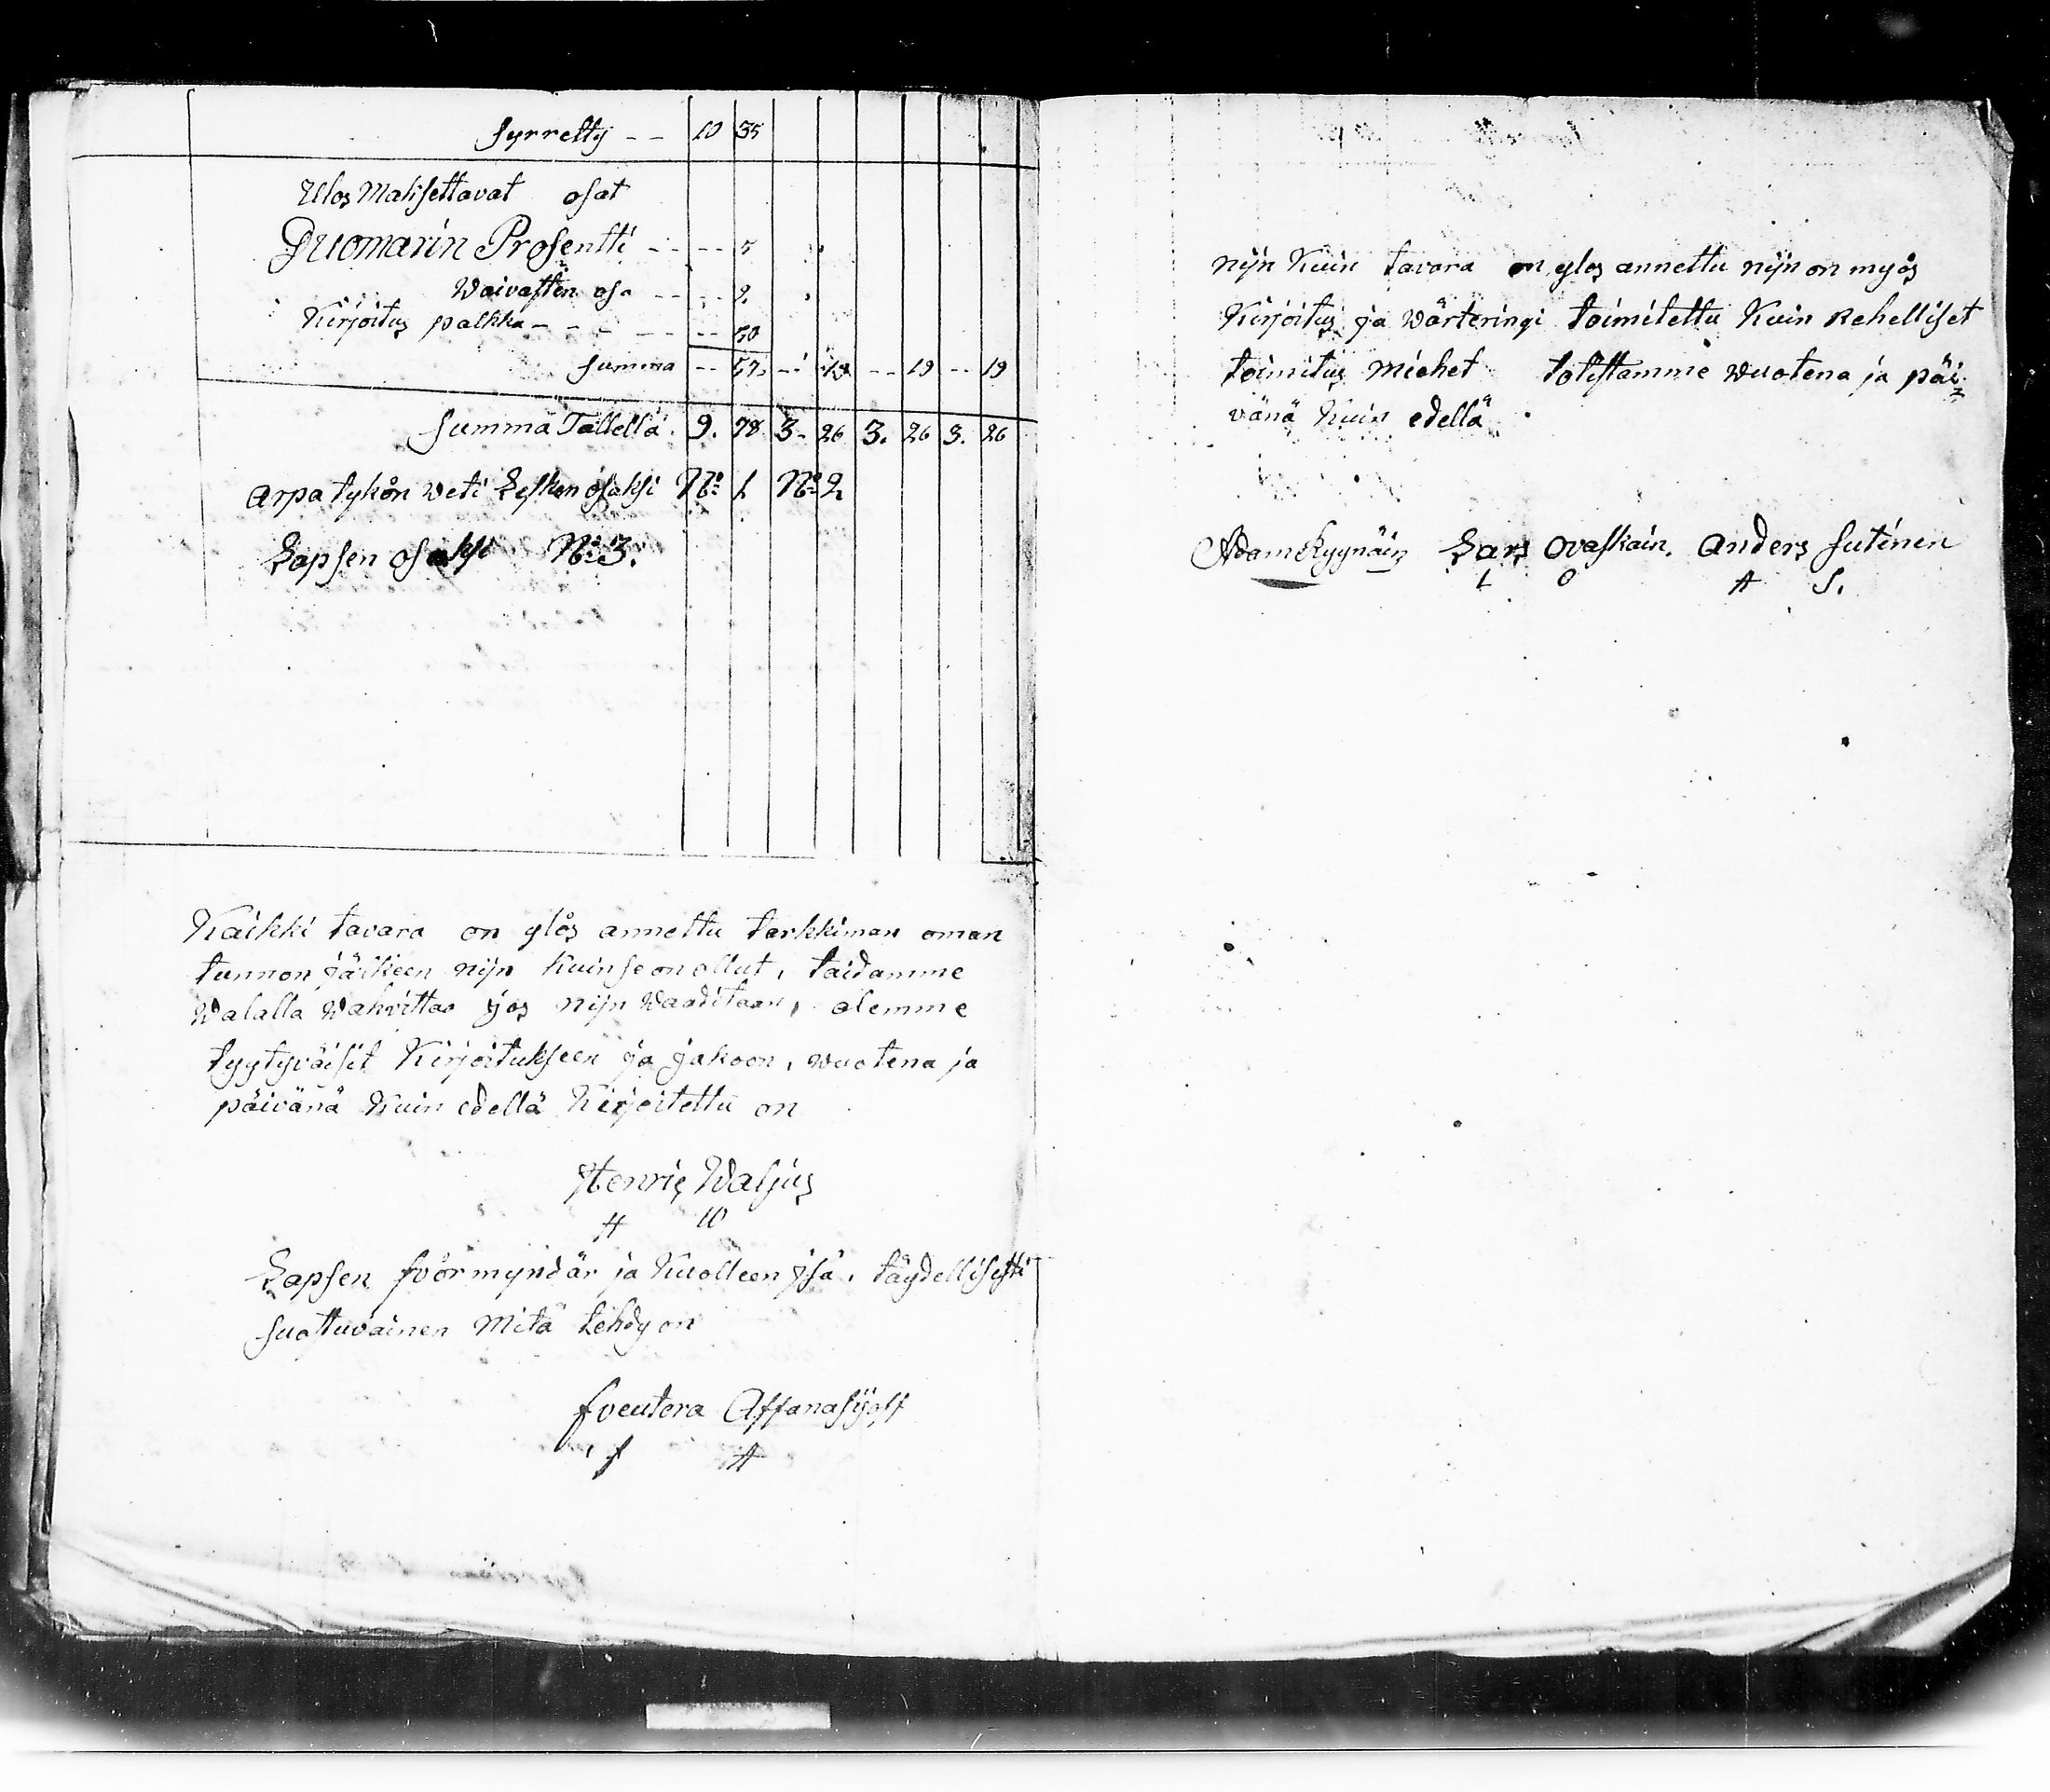 syrretty -- 10 35
Ulos Maksettavat osat
Duomarin Prosentti ---- 5
Waivasten osa ---- 2
Kirjoitus palkka ---- 50
summa -- 57 -- 19 -- 19 -- 19
Summa Tallella 9. 78 3. 26 3. 26 3. 26
arpa tykön weti Lesken osaksi No 1 No 2
Lapsen osaksi No 3.
Kaikki tavara on ylös annettu tarkkiman oman
tunnon jälkeen nijn kuin se on ollut, taidamme
Walalla Wahvittaa jos nijn Waaditaan, olemme
tyytyväiset Kirjoitukseen ja jakoon, wuotena ja
päivänä Kuin edellä Kirjoitettu on
Henric Waljus
H W
Lapsen förmyndär ja Kuolleen jsä, täydellisesti
suostuvainen Mitä tehdy on
Affanasjoff
f A
nijn Kuin tavara on ylos annettu nijn on myös
Kirjoitus ja Wärteringi toimitettu Kuin Rehelliset
toimitus miehet totistamme wuotena ja päi
vänä Kuin edellä
Adam Kyynäin Lars Ovaskain. Anders Sutinen
L O A S.